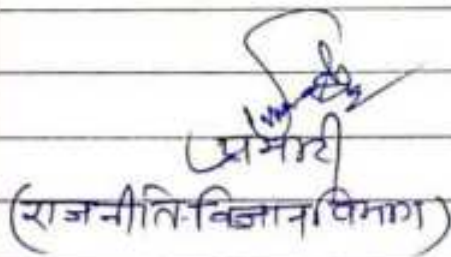 प्रभारी
(राजनीति-विज्ञान विभाग)